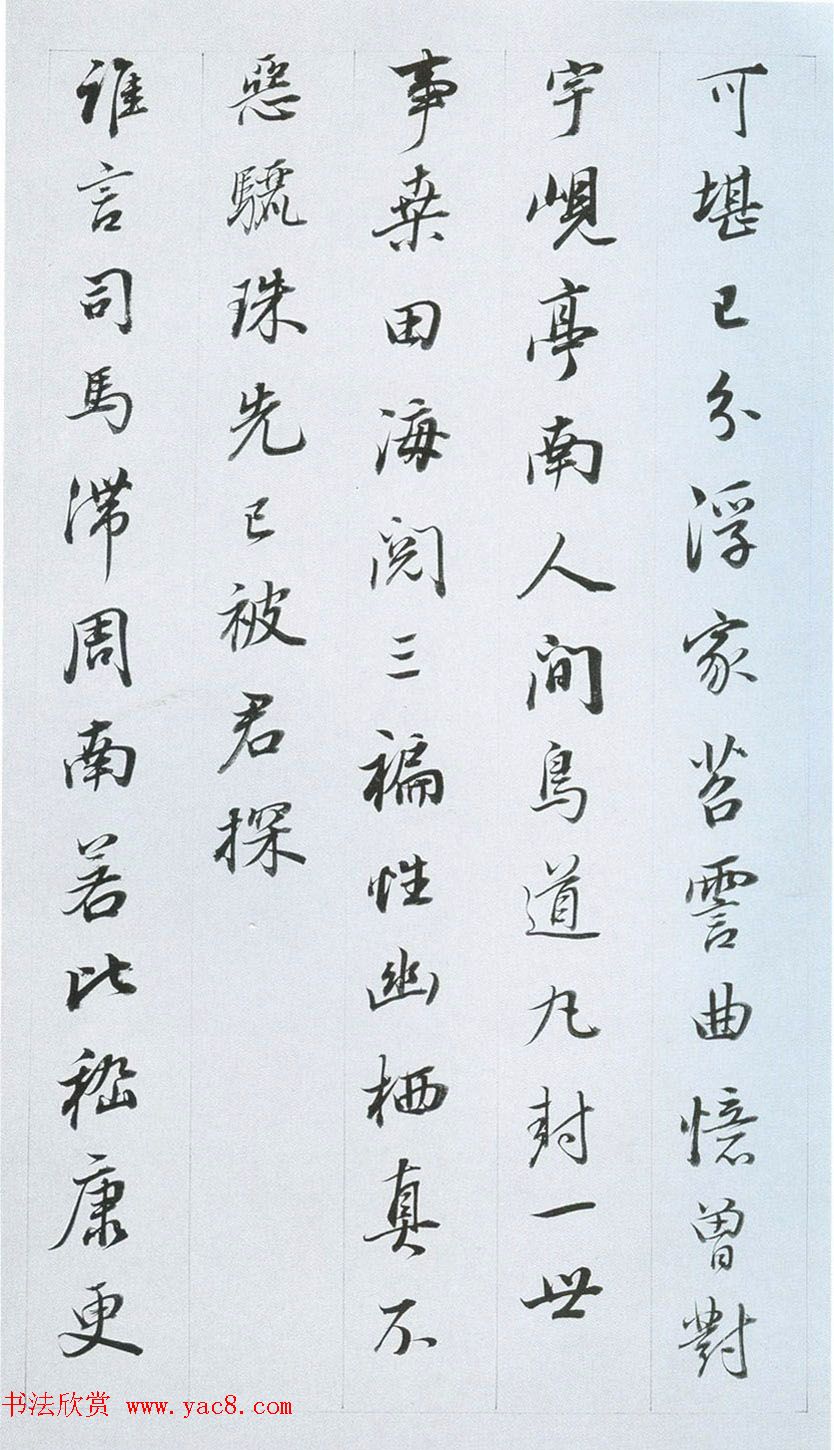 可堪已分浮家苕霅曲憶曾對
宇峴亭南人间鳥道丸封一世
事桒田海閱三褊性幽栖真不
惡驪珠先已被君探
谁言司馬滞周南若比嵇康更
书法欣赏 www.yac8.com